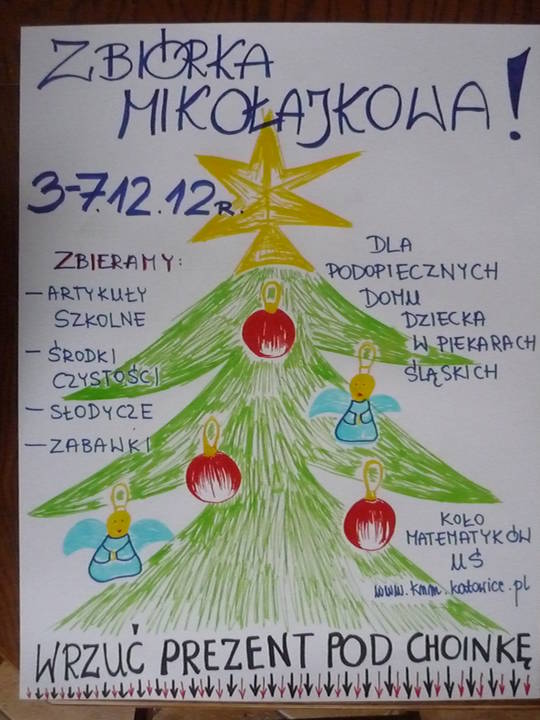 ZBIÓRKA
MIKOŁAJKOWA!
3-7.12.12R.
ZBIERAMY:
- ARTYKUŁY
SZKOLNE
- ŚRODKI
CZYSTOŚCI
- SŁODYCZE
- ZABAWKI
DLA
PODOPIECZNYCH
DOMU
DZIECKA
W PIEKARACH
ŚLĄSKICH
KOŁO
MATEMATYKÓW
UŚ
www.knm.katowice.pl
WRZUĆ PREZENT POD CHOINKĘ